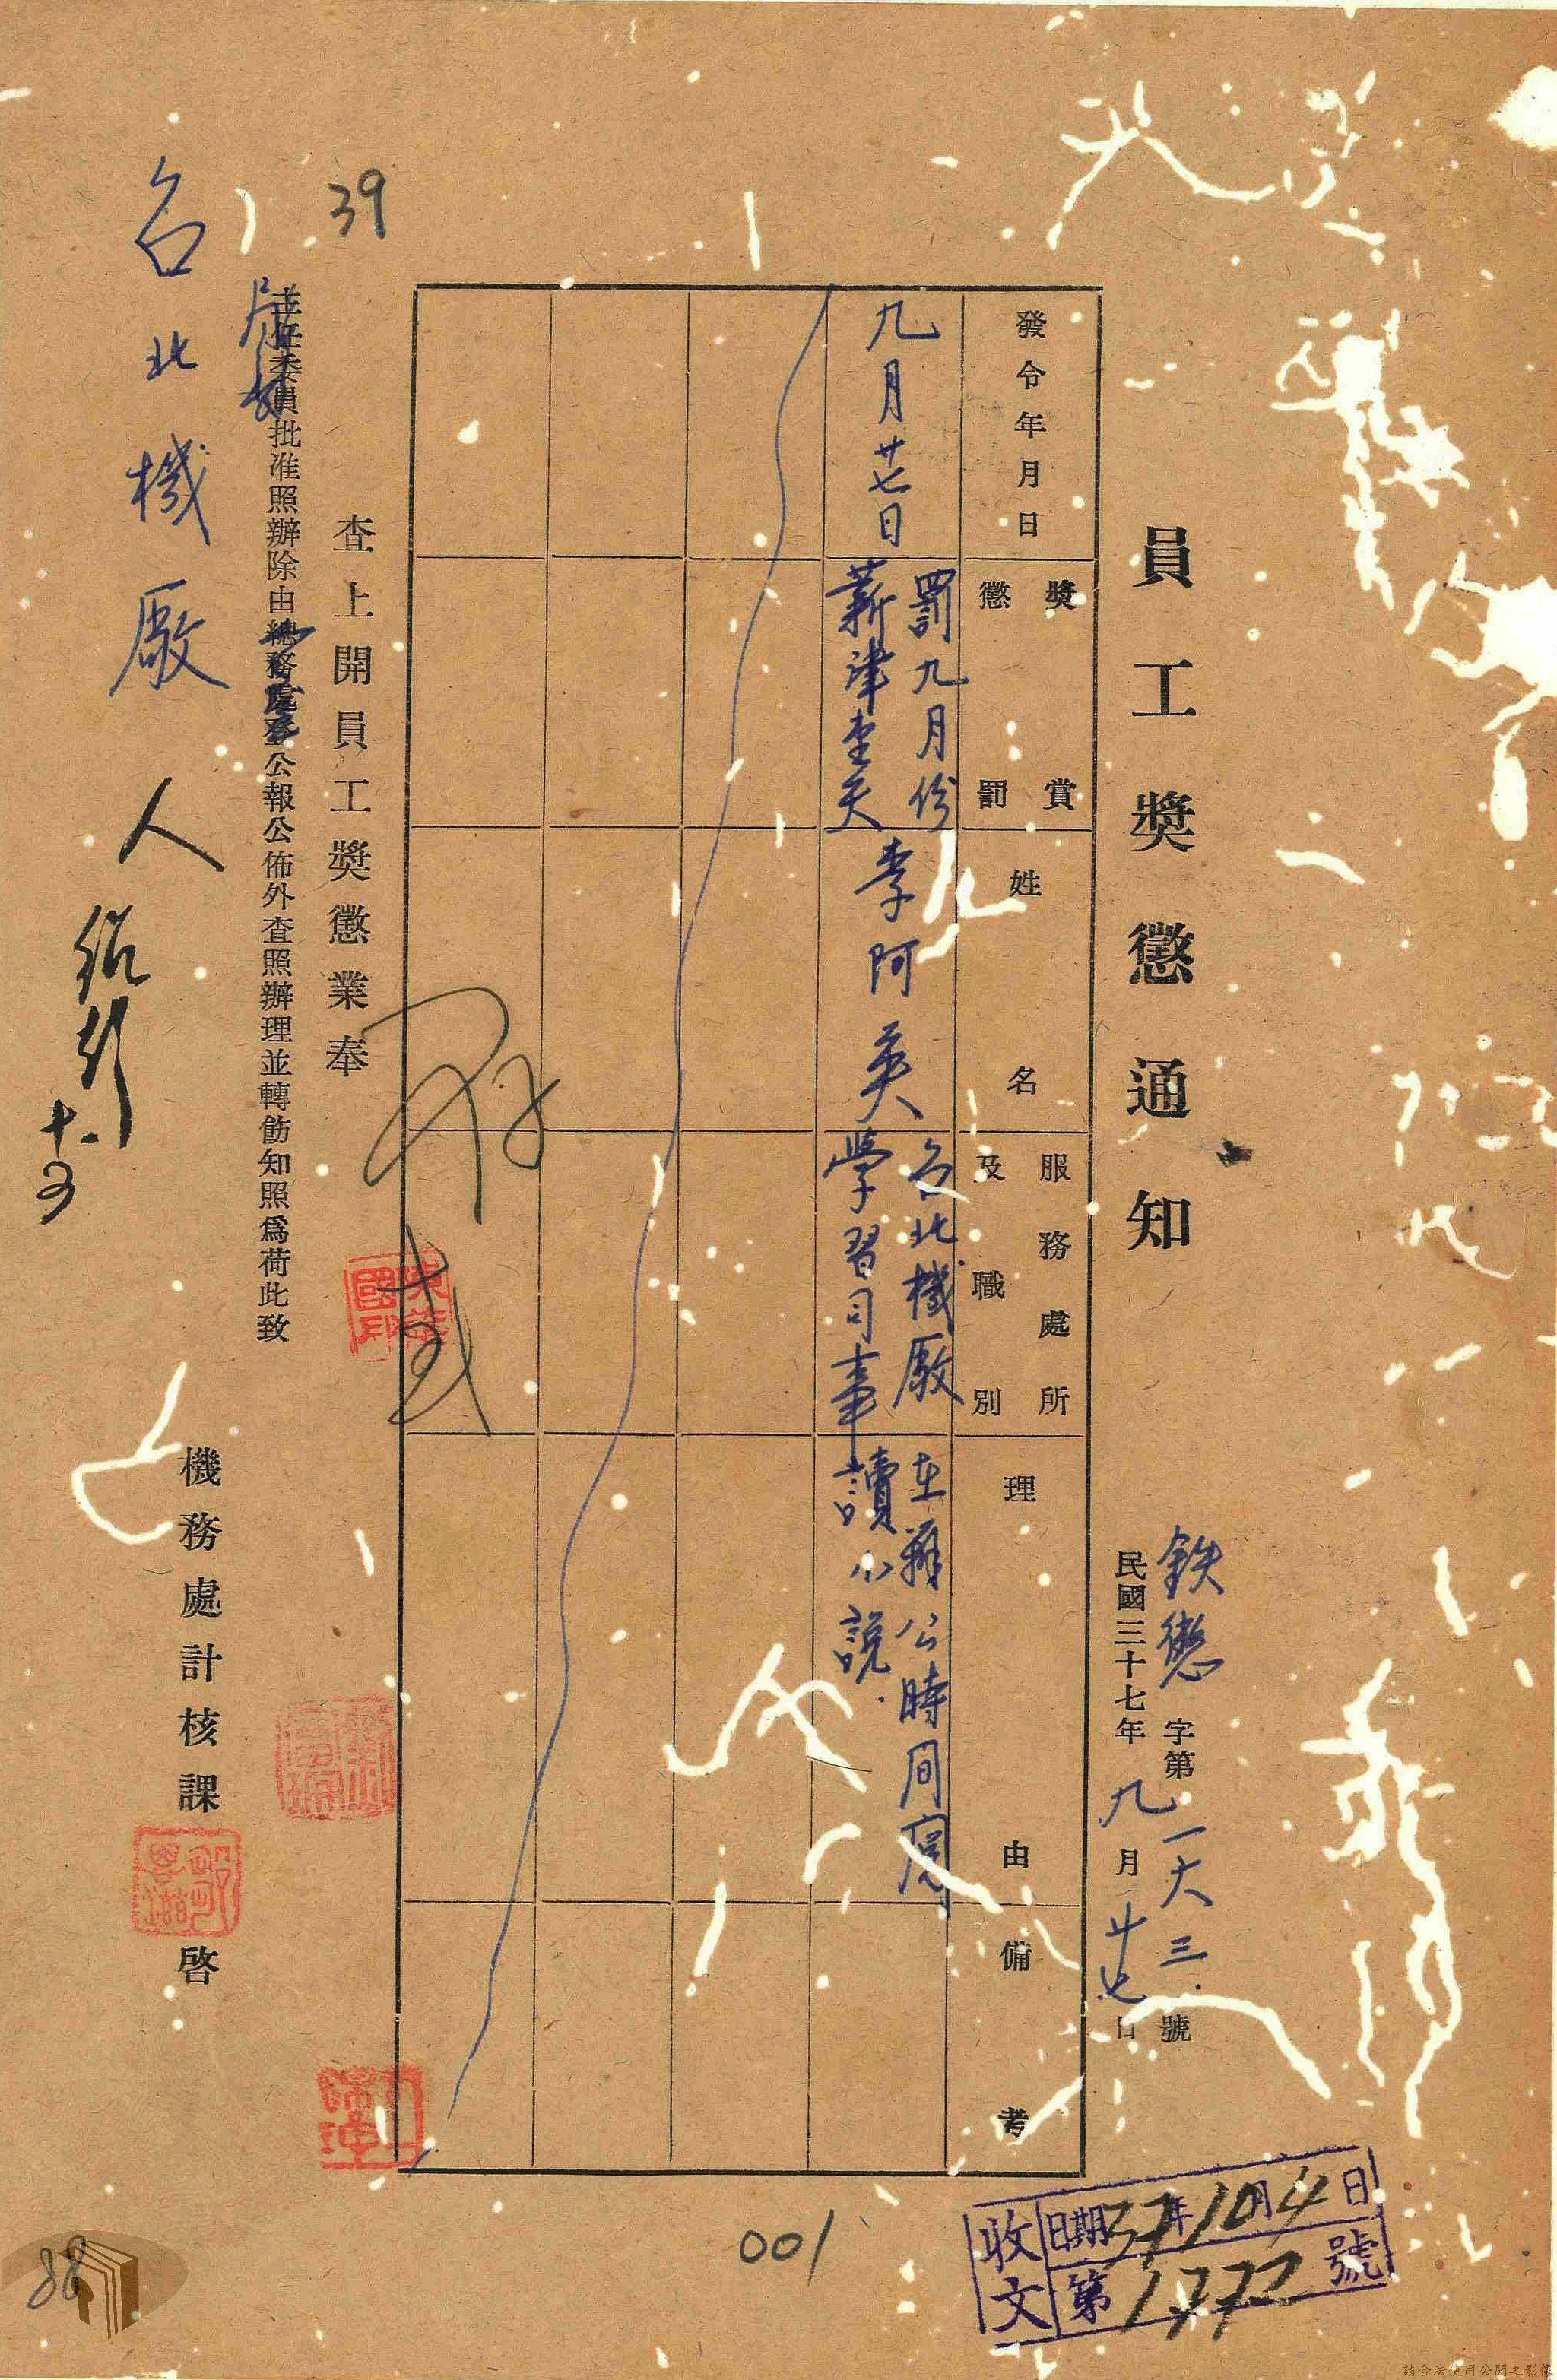 員工獎懲通知
鉄懲字第一六三號
民國三十七年九月廿七日
發令年月日
獎賞
懲罰
姓名
服務處所
及職別
理由
備考
九月廿七日
罰九月份
薪津壹天
李阿英
台北機廠
學習司事
在辦公時間寫
讀小說.
查上開員工獎懲業奉
主任委員批准照辦除由總務處登公報公佈外查照辦理並轉飭知照爲荷此致
台北機廠
機務處計核課啓
人
十.
39
001
88
收文
日期37年10月4日
第1772號
請合法使用公開之影像